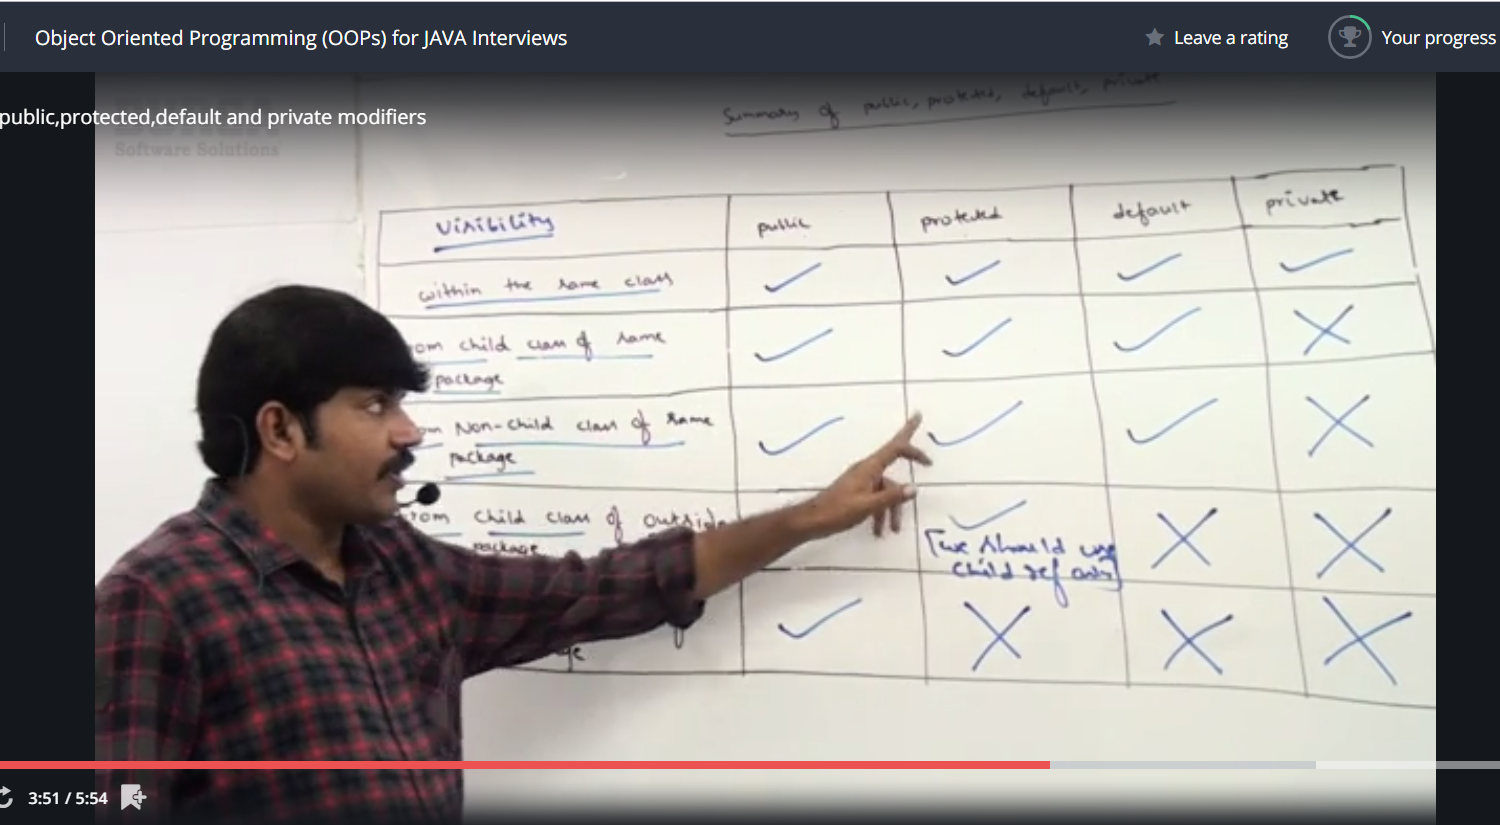 Object Oriented Programming (OOPs) for JAVA Interviews
Leave a rating
Your progress
public,protected,default and private modifiers
Software Solutions
Summary of public, protected, default, private
Visibility public protected default private
within the same class
om child class of same
package
om Non-child class of same
package
rom child class of outside
package
[we should use
child ref only]
ge
3:51 / 5:54